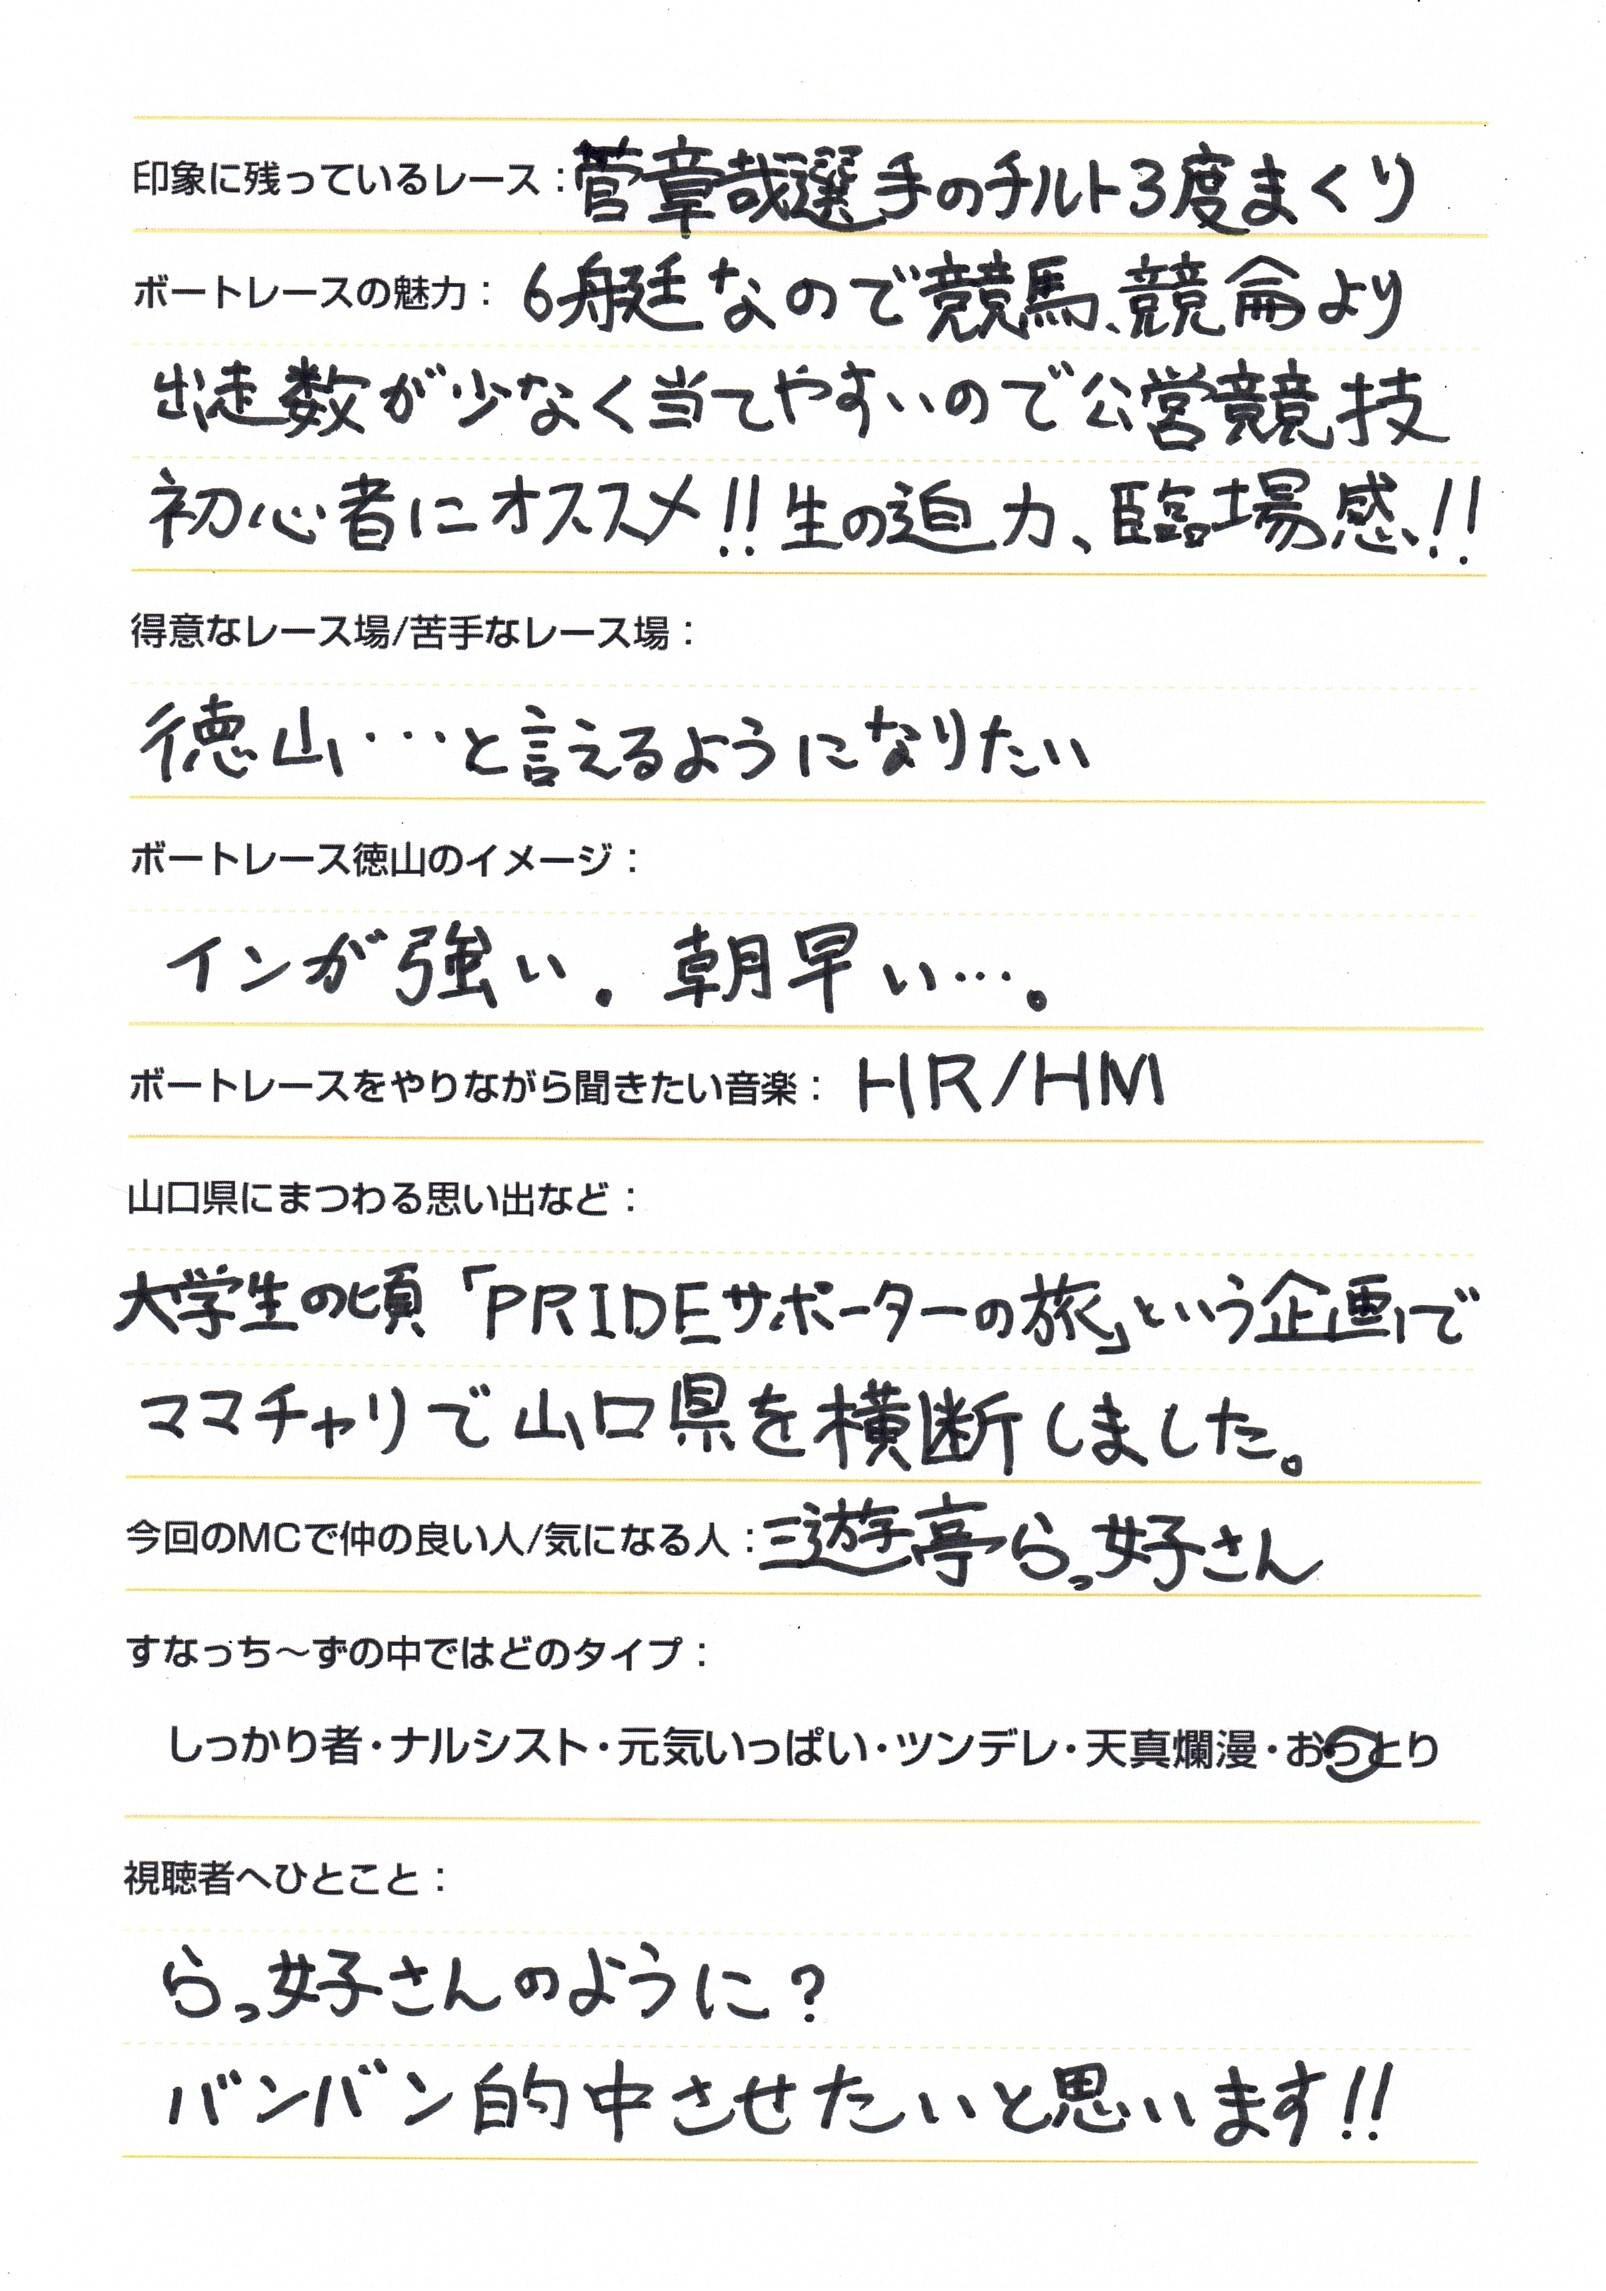 印象に残っているレース：菅章哉選手のチルト3度まくり
ボートレースの魅力：6艇なので競馬、競侖より
出走数が少なく当てやすいので公営競技
初心者にオススメ!!生の迫力、臨場感!!
得意なレース場/苦手なレース場：
徳山…と言えるようになりたい
ボートレース徳山のイメージ：
インが強い。朝早い…。
ボートレースをやりながら聞きたい音楽：HR/HM
山口県にまつわる思い出など：
大学生の頃「PRIDEサポーターの旅」という企画で
ママチャリで山口県を横断しました。
今回のMCで仲の良い人/気になる人：三遊亭らっ好さん
すなっち～ずの中ではどのタイプ：
しっかり者・ナルシスト・元気いっぱい・ツンデレ・天真爛漫・おっとり
視聴者へひとこと：
らっ好さんのように？
バンバン的中させたいと思います!!